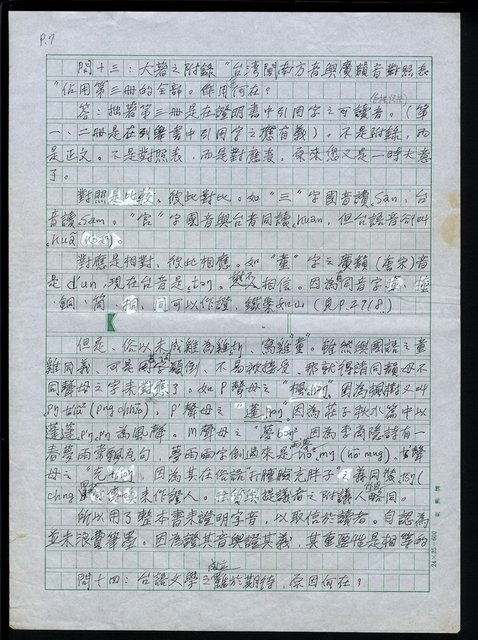 P.7
問十三：大著之附錄“台湾閩南方音與廣韻音對照表
”佔用第三冊的全部。作用何在？
答：拙著第三冊是在證明書中引用字之可讀音。（第
一、二冊是在列舉書中引用字之應有義）。不是附錄，而
是正文。不是對照表，而是對應表。原來您又是一時大意
了。
對照是比較。彼此對比。如“三”字國音讀San，台
音讀Sam。“官”字國音與台音同讀Kuan，但台語音卻叫
Kuã
對應是相對，彼此相應。如“童”字之廣韻（唐宋）音
是d'un，現在台音是toŋ，人相信。因為同音字
、銅、筒、桐、同可以作證，鐵案如山（見P.2718）
但是，俗以未成雞為雞，寫雞童”。雖然與國語之童
雞同義，可是因字顛倒，不易被接受，那就得請同韻母不
同聲母之字來對應了。如P聲母之“楓”因為楓樹又叫
P'聲母之“蓬”因為莊子秋水篇中以
蓬蓬為風聲。M聲母之“夢”因為李商隱詩有一
春夢雨常飄瓦句，夢雨兩字倒過來是
母之“充”，因為其在俗語“打腫臉充胖子”義同
來作證人。提議者之附議人認同。
所以用了整本書來證明字音，以取信於讀者。自認為
並未浪費筆墨。因為證其音與證其義，其重要性是相等的
問十四：台語文學之難於期待，原因何在？
24×25=600